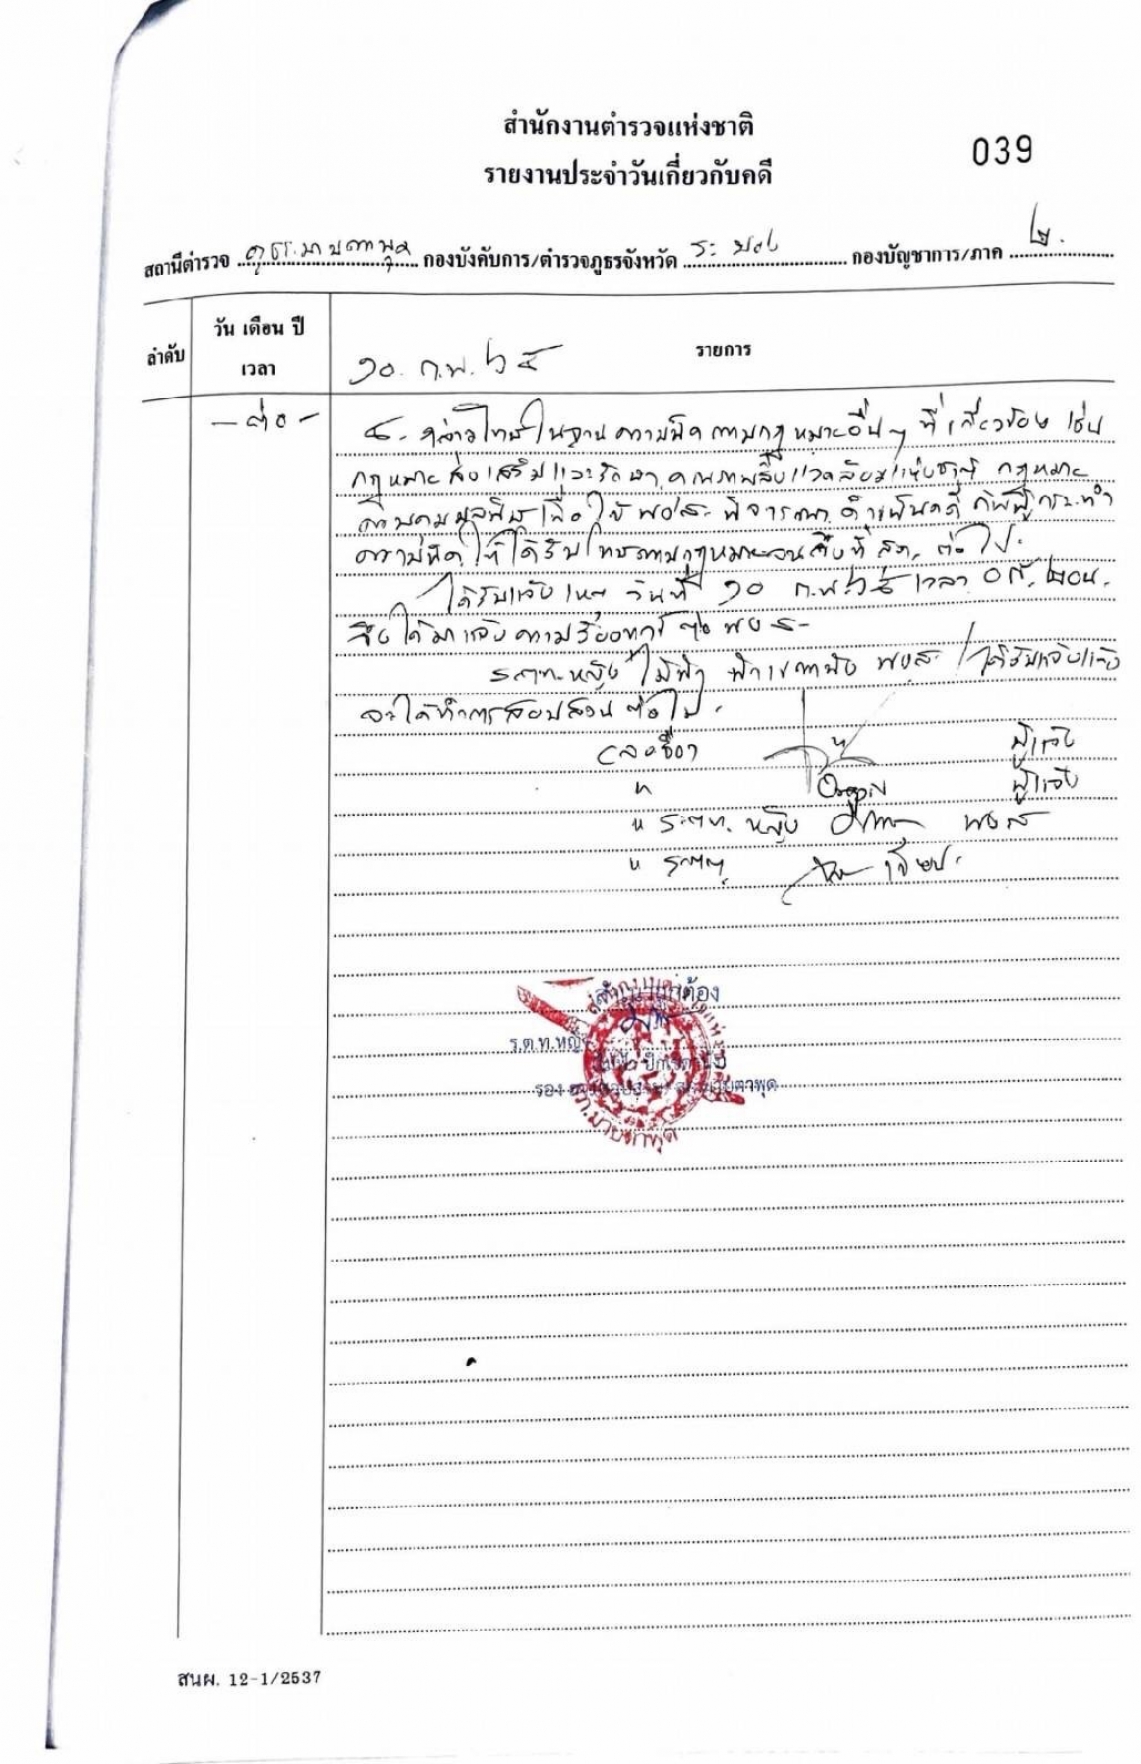 สำนักงานตำรวจแห่งชาติ
รายงานประจำวันเกี่ยวกับคดี
039
สถานีตำรวจ ภูธร.มาบตาพุด กองบังคับการ/ตำรวจภูธรจังหวัด ระยอง กองบัญชาการ/ภาค ๒.
ลำดับ
วัน เดือน ปี
เวลา
รายการ
๑๐. ก.พ. ๖๕
- ต่อ -
๕. กล่าวโทษในฐานความผิดตามกฎหมายอื่นๆ ที่เกี่ยวข้อง เช่น
กฎหมายส่งเสริมและรักษาคุณภาพสิ่งแวดล้อมแห่งชาติ กฎหมาย
ควบคุมมลพิษ เพื่อให้ พงส. พิจารณาดำเนินคดี กับผู้กระทำ
ความผิด ให้ได้รับโทษตามกฎหมายจนถึงที่สุด ต่อไป.
ได้รับแจ้งเหตุ วันที่ ๑๐ ก.พ.๖๕ เวลา ๒๐น.
จึงได้มาแจ้งความร้องทุกข์ ต่อ พงส.
ร.ต.ท.หญิง ไม้ฟ้า พงส. ได้รับแจ้งแล้ว
จะได้ทำการสอบสวนต่อไป.
(ลงชื่อ) ผู้แจ้ง
" ผู้แจ้ง
" ร.ต.ท. หญิง พงส
"
สำเนาถูกต้อง
ร.ต.ท.หญิง
รอง มาบตาพุด
ภ.มาบตาพุด
สนผ. 12-1/2537